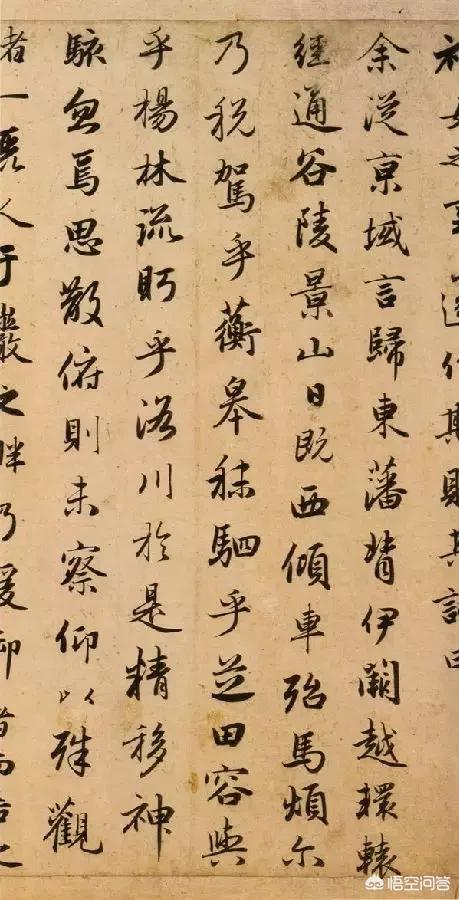 神女之事遂作斯賦其詞曰
余從京域言歸東藩背伊闕越轘轅
經通谷陵景山日既西傾車殆馬煩尔
乃税駕乎蘅皋秣駟乎芝田容與
乎楊林流眄乎洛川於是精移神
駭忽焉思散俯則未察仰以殊觀
一麗人于巖之畔乃援御者而告之
悟空问答